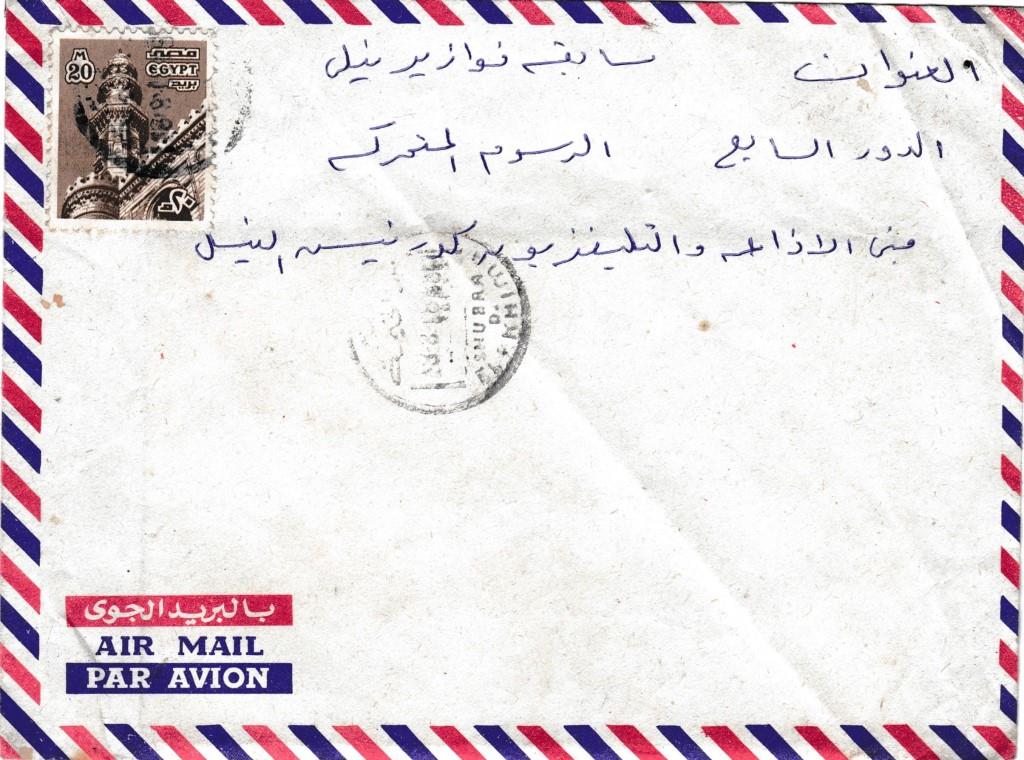 M
20
مصر
EGYPT
بريد
العنوان سابقه فوازير نيلى
الدور السابع الرسوم المتحركه
مبنى الاذاعه والتليفزيون كورنيس النيل
SHUBRA
بالبريد الجوى
AIR MAIL
PAR AVION